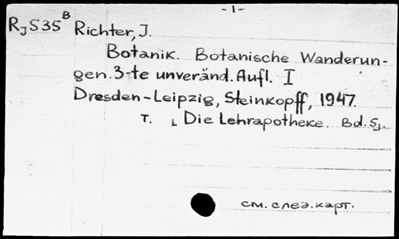 -1-
RJ535 B Richter, J.
Botanik. Botanische Wanderun-
gen. 3-te unveränd. Aufl. I
Dresden-Leipzig, Steinkopff, 1947.
T. Die Lehrapotheke. Bd. 5
см. след. карт.